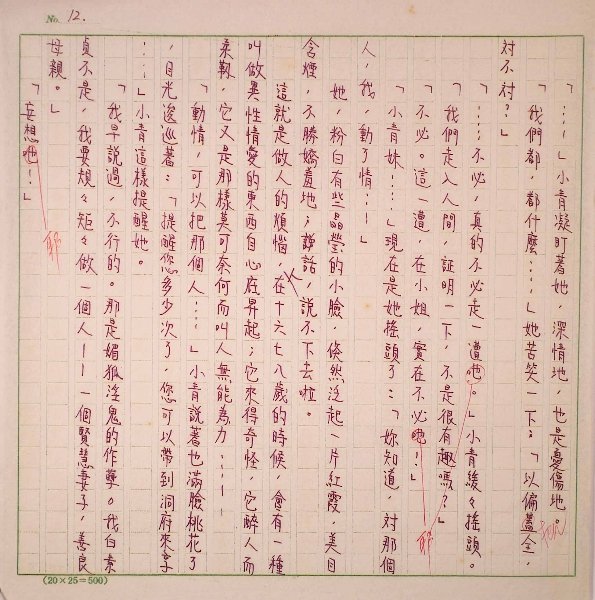 No. 12.
「……」小青凝盯著她，深情地，也是憂傷地。
「我們都，都什麼……」她苦笑一下：「以偏蓋全，
對不對？」
「……不必，真的不必走一遭吔。」小青緩々搖頭。
「我們走入人間，証明一下，不是很有趣嗎？」
「不必。這一遭，在小姐，實在不必吔！」
「小青妹……」現在是她搖頭了：「妳知道，対那個
人，我，動了情……」
她，粉白有些晶瑩的小臉，倏然泛起一片紅霞，美目
含煙，不勝嬌羞地；說話，說不下去啦。
這就是做人的煩惱，在十六七八歲的時候，會有一種
叫做異性情愛的東西自心在昇起；它來得奇怪，它醉人而
柔靱，它又是那樣莫可奈何而叫人無能為力……
「動情，可以把那個人……」小青說著也滿臉桃花了
，目光逡巡著：「提醒您多少次了，您可以帶到洞府來享
……」小青這樣提醒她。
「我早說過，不行的。那是媚狐淫鬼的作孽。我白素
貞不是，我要規々矩々做一個人——一個賢慧妻子，善良
母親。」
「妄想吔！」
耶
耶
(20×25=500)